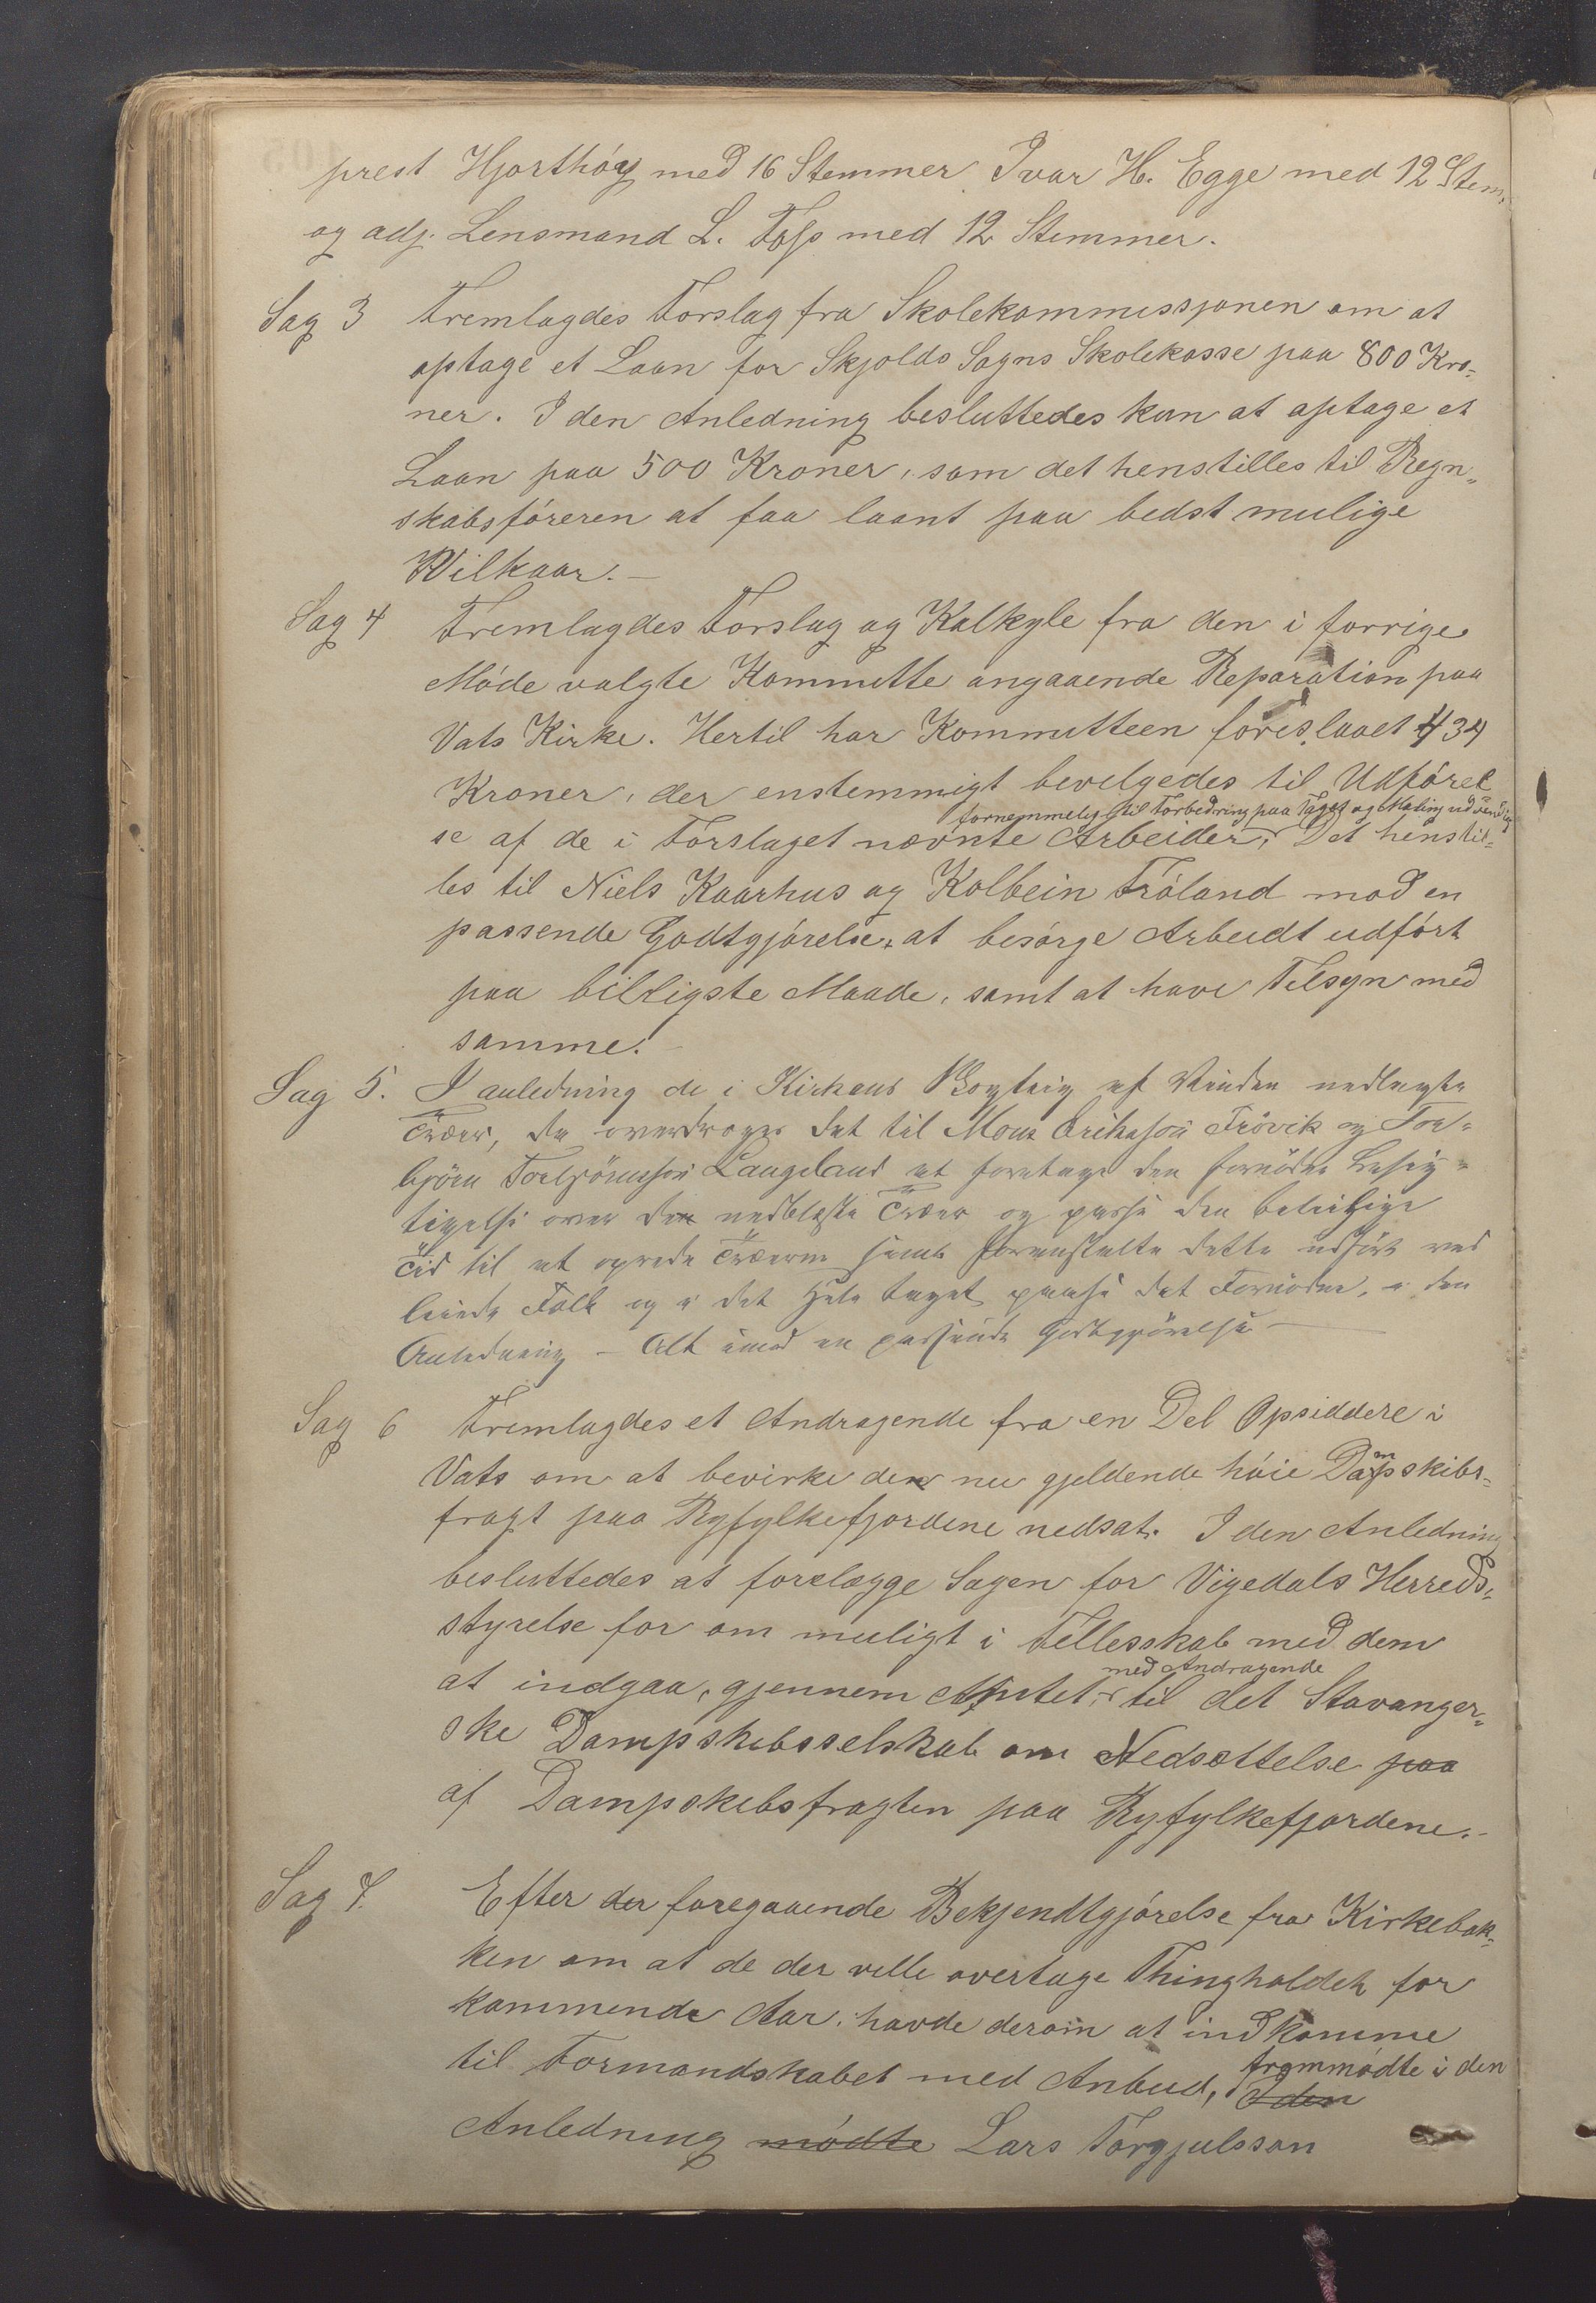 prest Hjorthöy med 16 Stemmer Ivar H. Egge med 12 Stem,
og adj. Lensmand L. Foss med 12 Stemmer.
Sag 3 Fremlagdes Forslag fra Skolekommissjonen om at
optage et Laan for Skjolds Sogns Skolekasse paa 800 Kro-
ner. I den Anledning besluttedes kun at optage et
Laan paa 500 Kroner, som det henstilles til Regn-
skabsföreren at faa laant paa bedst mulige
Vilkaar.-
Sag 4 Fremlagdes Forslag og Kalkyle fra den i forrige
Möde valgte Kommitte angaaende Reparation paa
Vats Kirke. Hertil har Kommitteen foreslaaet 434
Kroner, der enstemmigt bevilgedes til Udförel
fornemmelig til Forbedring paa Taget og Maling udvendig
se af de i Forslaget nævnte Arbeider, Det henstil-
les til Niels Kaarhus og Kolbein Fröland mod en
passende Godtgjörelse, at besörge Arbeidt udfört
paa billigste Maade, samt at have Tilsyn med
samme.-
Sag 5. I anledning de i Kirkens af Vinden nedlagte
Træer, da overdroges det til Mons Eriksson Frövik og Tor-
björn Torbjörnsson Langeland at foretage den fornödne Besig-
tigelse over den nedblæste Træer og passe den beleilige
Tid til at oprede Træerne samt foranstalte dette udfört ved
leiede Folk og i det Hele taget passe det Fornödne, i den
Anledning - Alt imod en passende Godtgjörelse -
Sag 6 Fremlagdes et Andragende fra en Del Opsiddere i
Vats om at bevirke den nu gjeldende höie Dampskibs-
fragt paa Ryfylkefjordene nedsat. I den Anledning
besluttedes at forelægge Sagen for Vigedals Herreds-
styrelse for om muligt i Fellesskab med dem
med Andragende
at indgaa, gjennem Amtet, til det Stavanger-
ske Dampskibsselskab om Nedsættelse paa
af Dampskibsfragten paa Ryfylkefjordene.-
Sag 7. Efter der foregaaende Bekjendtgjörelse fra Kirkebak-
ken om at de der ville overtage Thingholdet for
kommende Aar, havde derom at indkomme
til Formandskabet med Anbud, fremmödte i den
I den
Anledning mödte Lars Torgjulsson